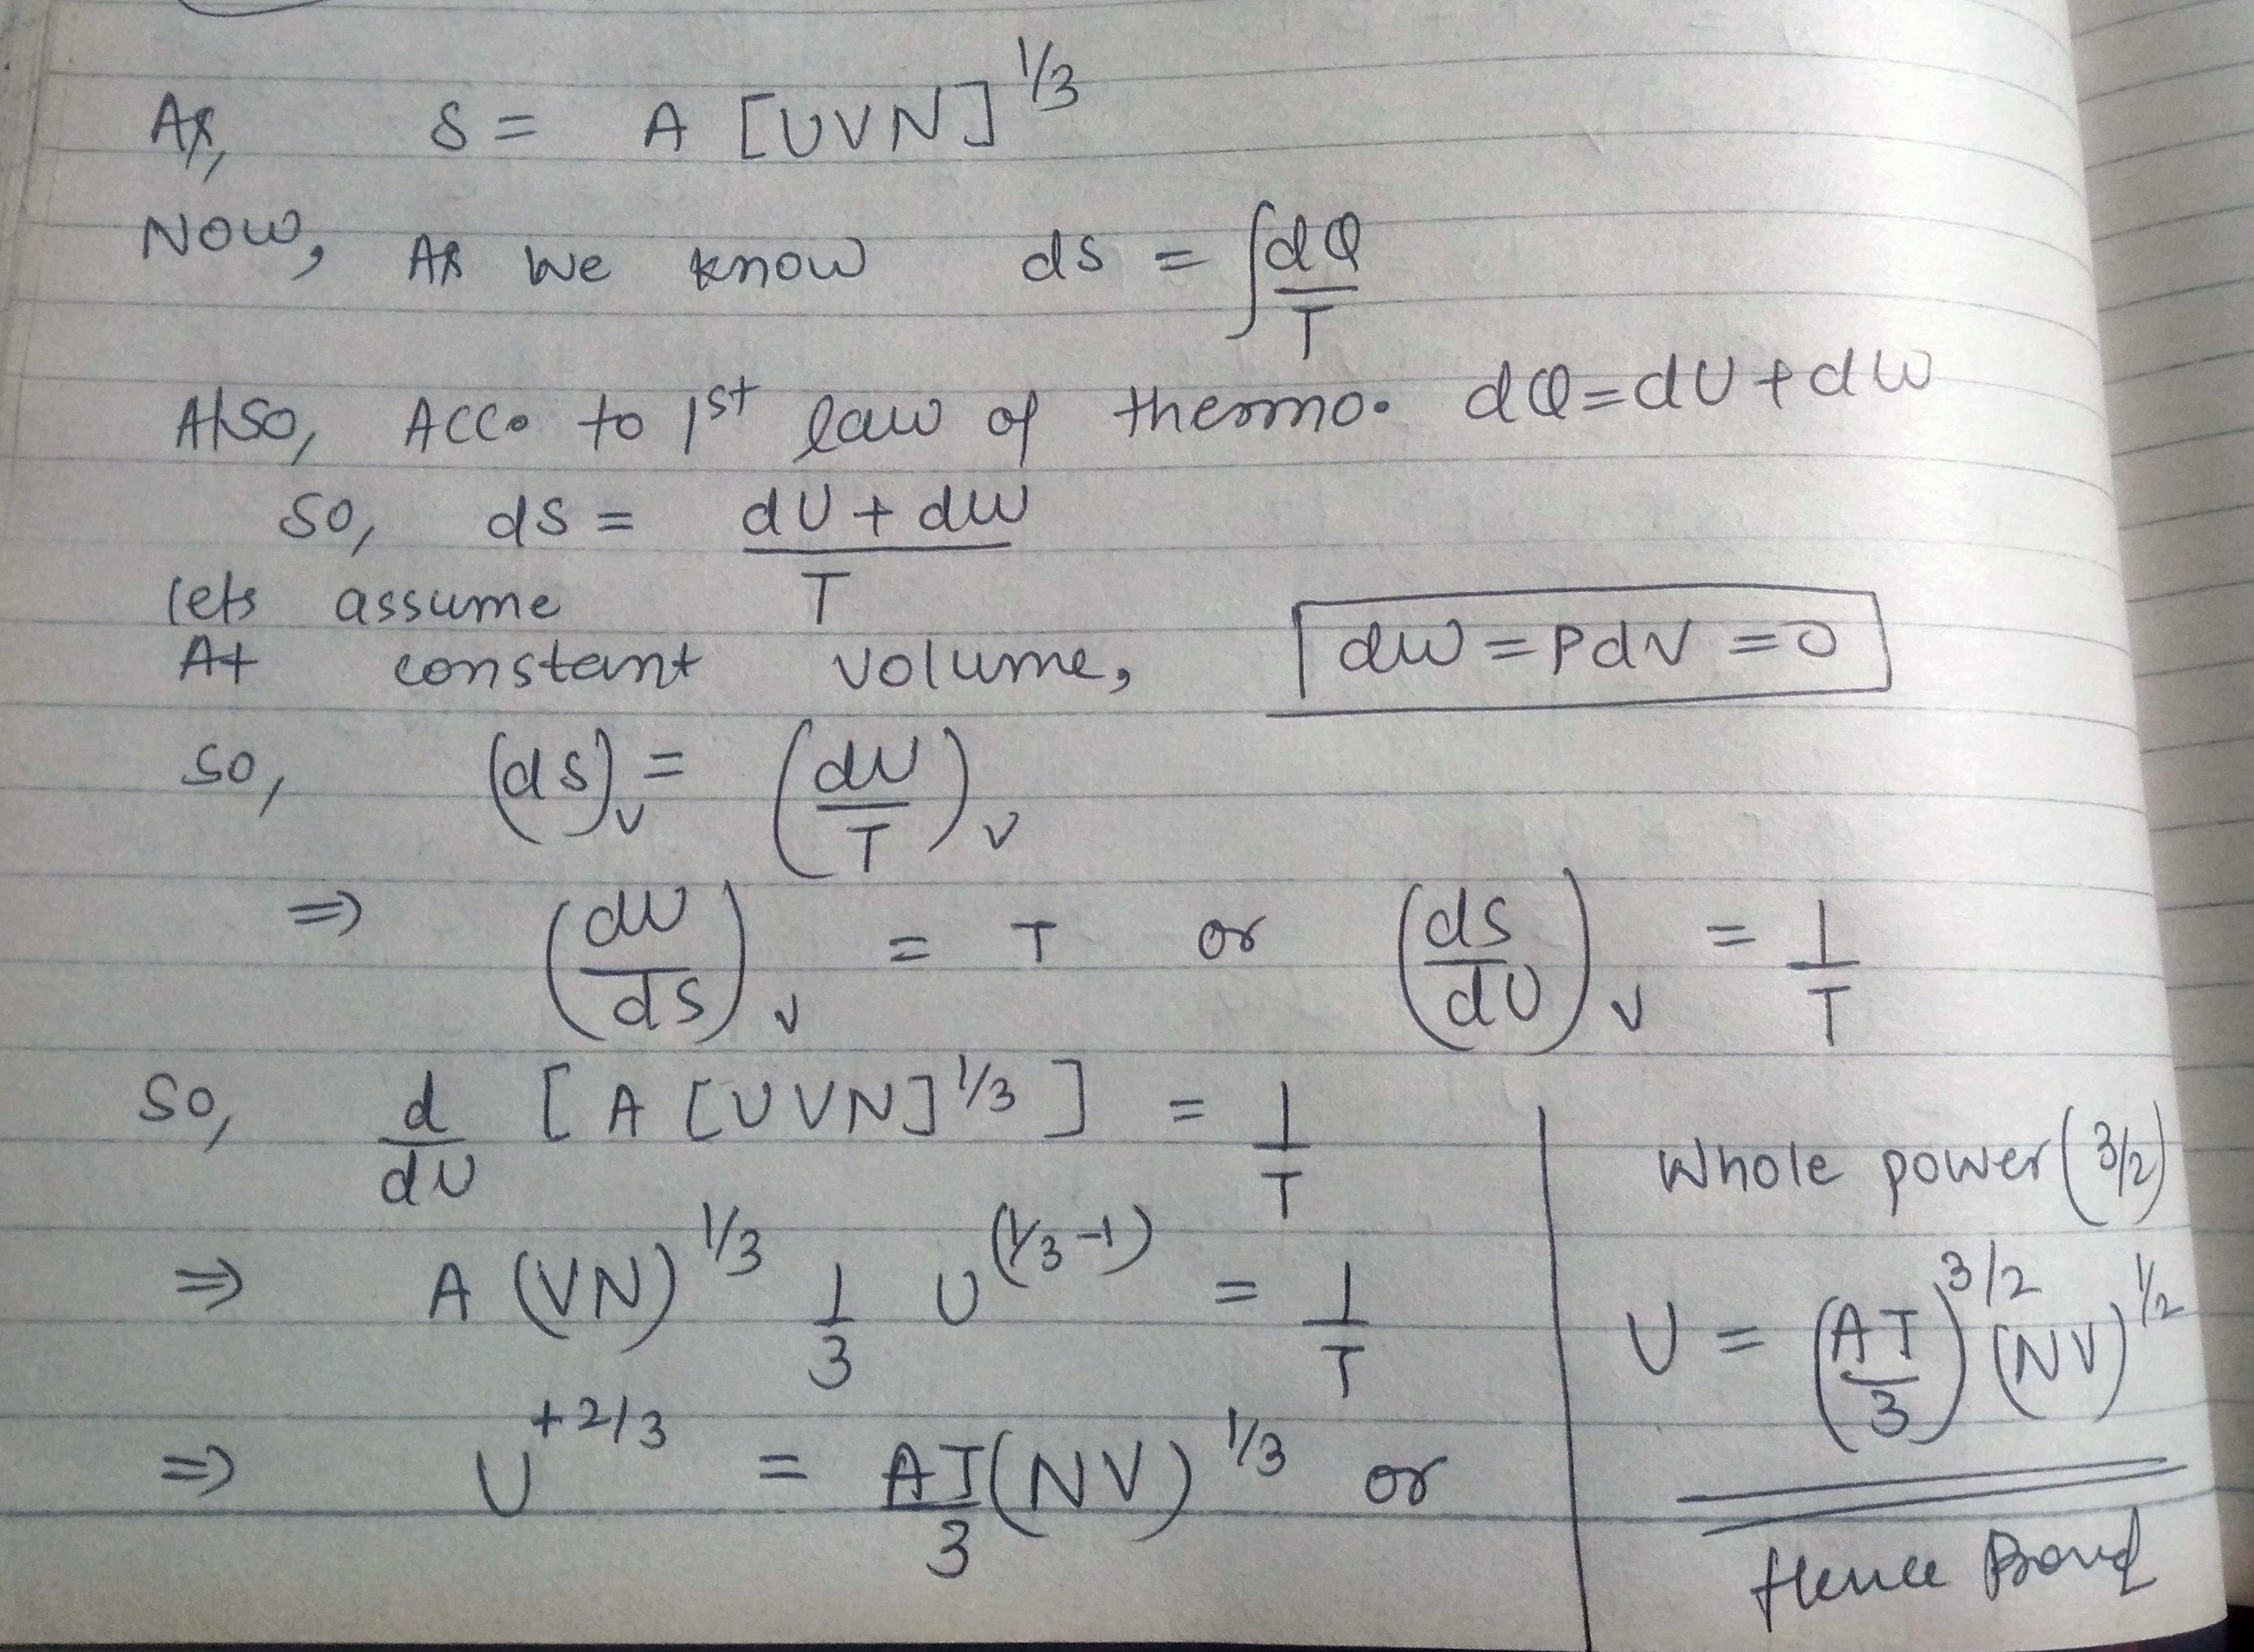 As, S = A [UVN]^1/3
Now, As we know ds = ∫dQ/T
Also, Acc. to 1st law of thermo. dQ=dU+dW
So, ds = (dU + dW)/T
lets assume
At constant volume, dW = PdV = 0
So, (ds)_V = (dU/T)_V
⇒ (dU/ds)_V = T or (ds/dU)_V = 1/T
So, d/dU [A [UVN]^1/3] = 1/T
⇒ A (VN)^1/3 1/3 U^(1/3-1) = 1/T
⇒ U^+2/3 = AT/3 (NV)^1/3 or
Whole power (3/2)
U = (AT/3)^3/2 (NV)^1/2
Hence Proved